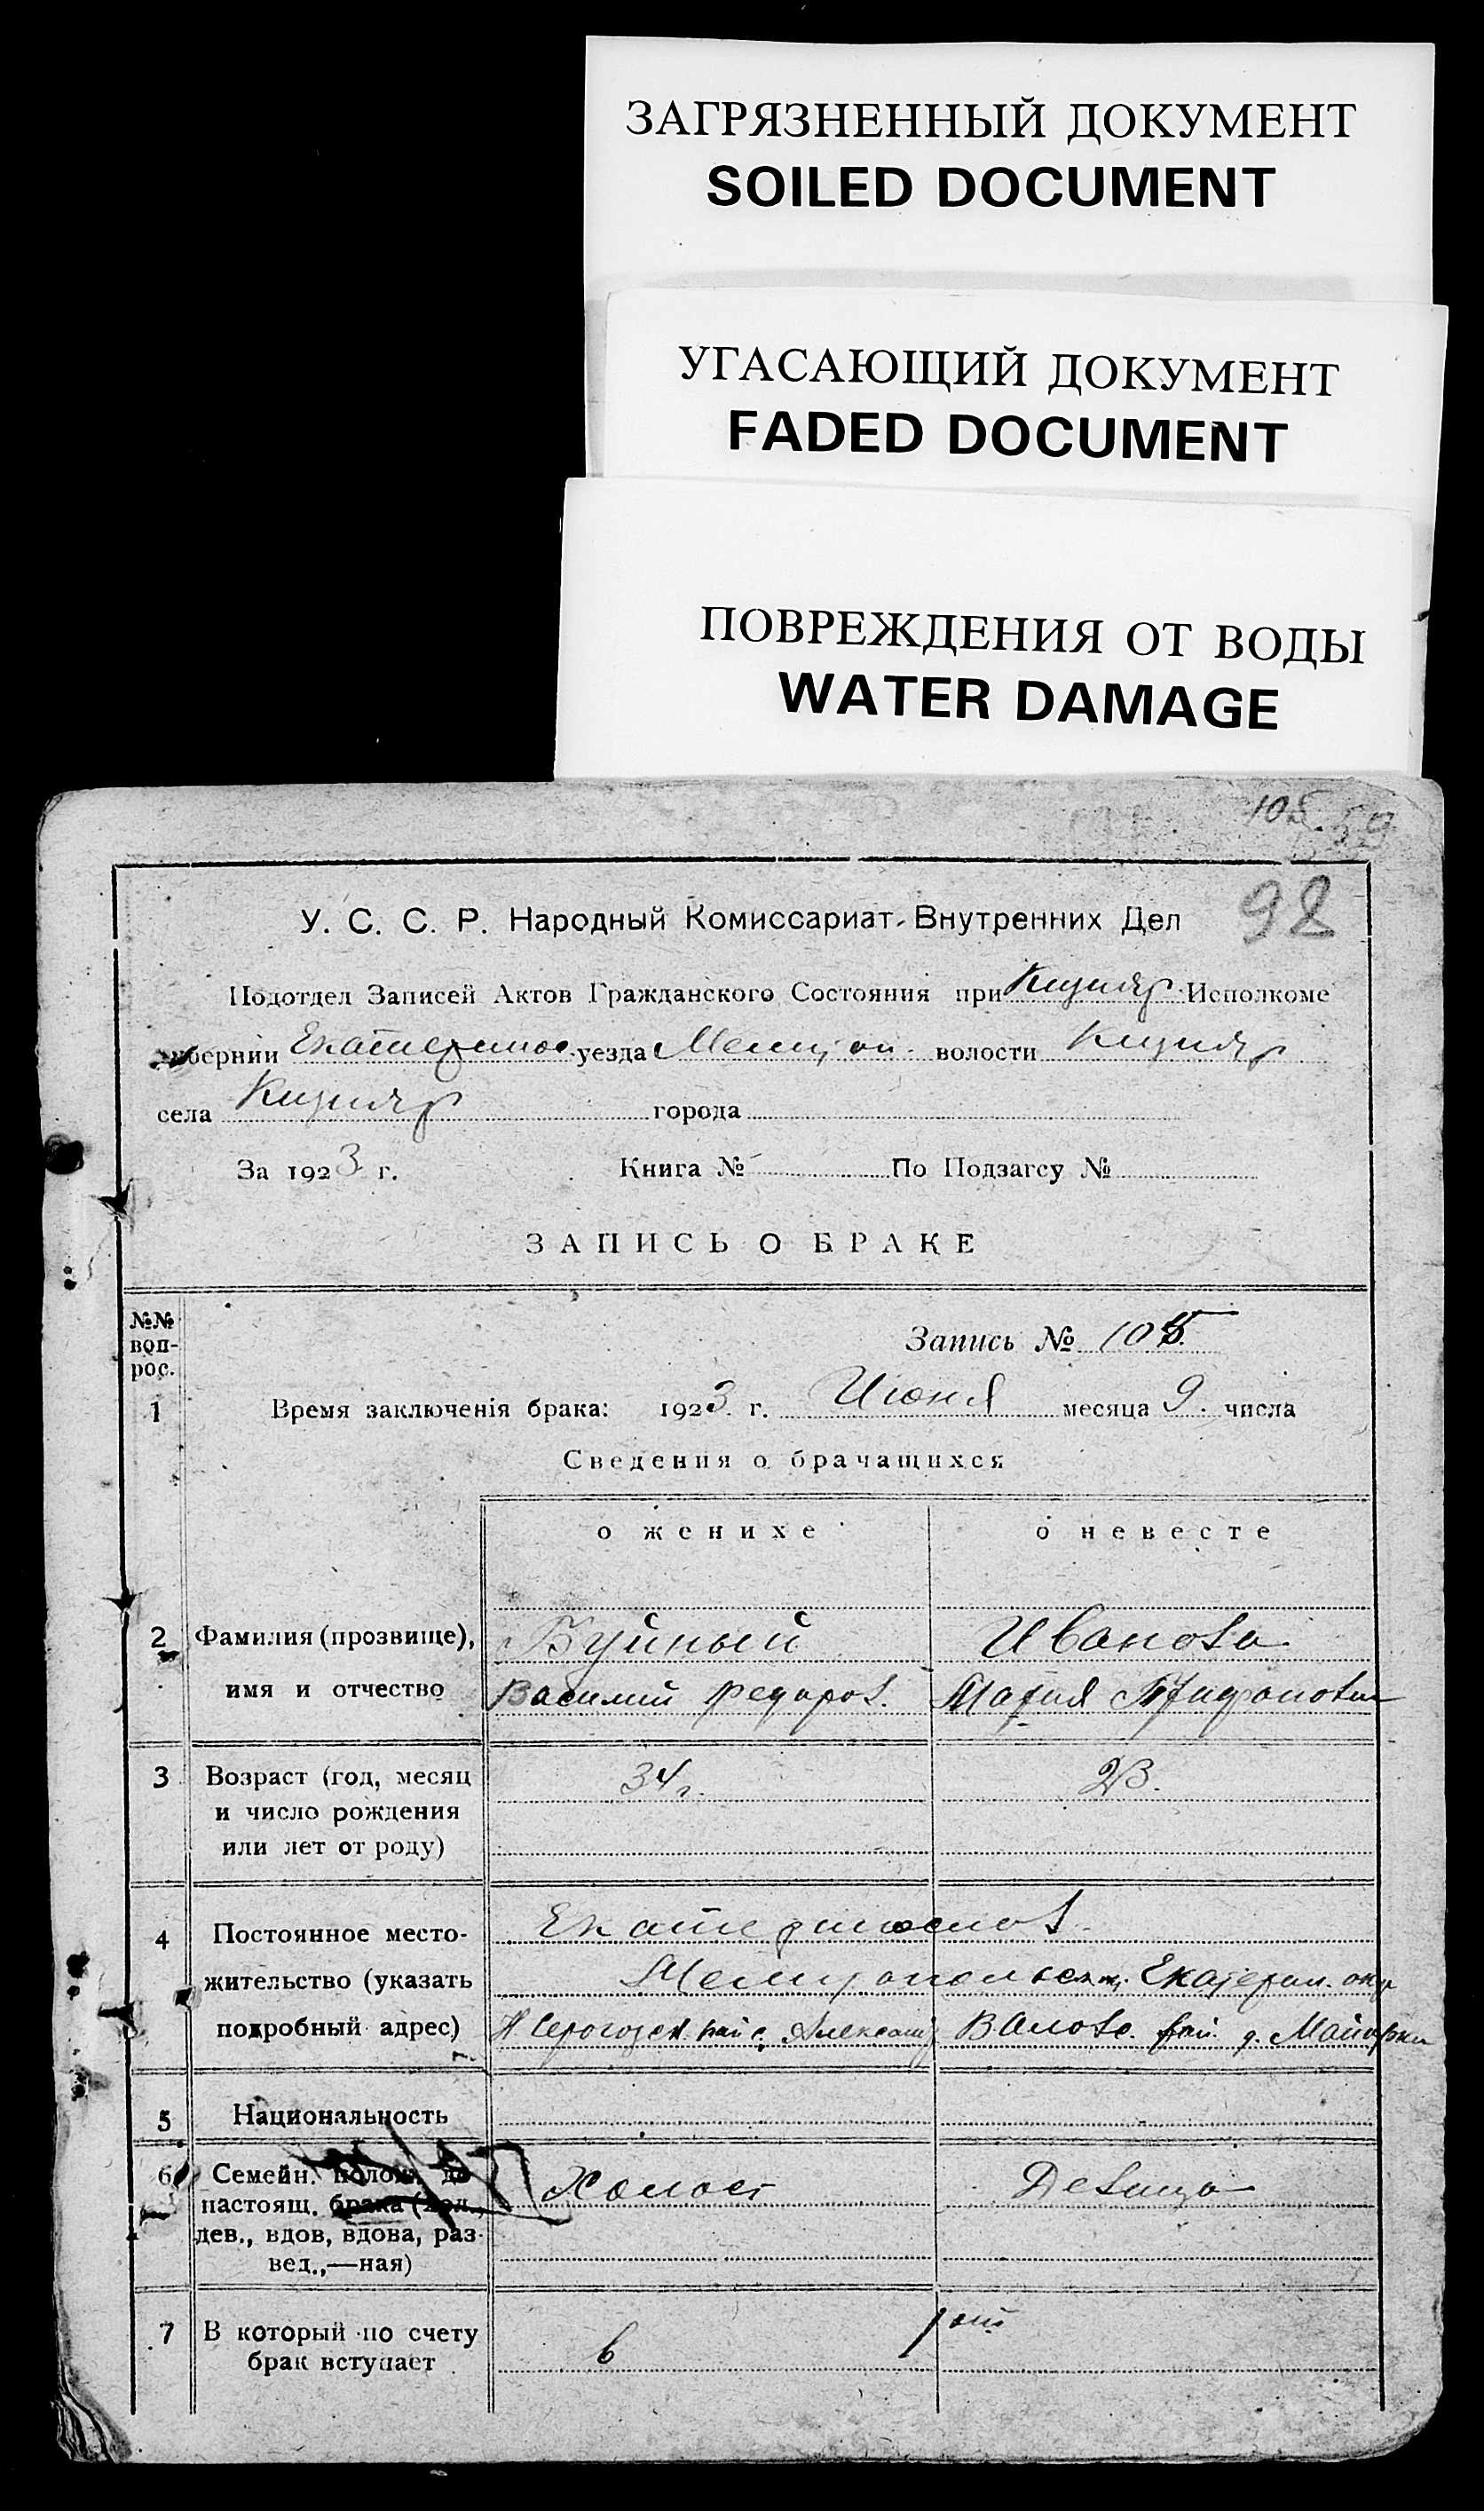 ЗАГРЯЗНЕННЫЙ ДОКУМЕНТ
SOILED DOCUMENT
УГАСАЮЩИЙ ДОКУМЕНТ
FADED DOCUMENT
ПОВРЕЖДЕНИЯ ОТ ВОДЫ
WATER DAMAGE
105. 59
98
У. С. С. Р. Народный Комиссариат Внутренних Дел
Подотдел Записей Актов Гражданского Состояния при Кизияр. Исполкоме
губернии Екатеринос. уезда Мелитоп. волости Кизияр
села Кизияр города
За 1923 г. Книга № По Подзагсу №
ЗАПИСЬ О БРАКЕ
№№ воп-рос.
Запись № 105.
1 Время заключенія брака: 1923 г. Июня месяца 9. числа
Сведения о брачащихся
о женихе о невесте
2 Фамилия (прозвище), Буйный Иванова
имя и отчество Василий Федоров. Мария Трифоновна
3 Возраст (год, месяц 34 г. 23.
и число рождения
или лет от роду)
4 Постоянное место- Екатеринослав
жительство (указать Мелитопольск. Екатерин. окр
подробный адрес) Н Серогозск. рай с. Александ Валов. рай. д. Майорки
5 Национальность
6 Семейн. полож. до Холост Девица
настоящ. брака (хол.,
дев., вдов, вдова, раз-
вед.,—ная)
7 В который по счету в 1 ый
брак вступает